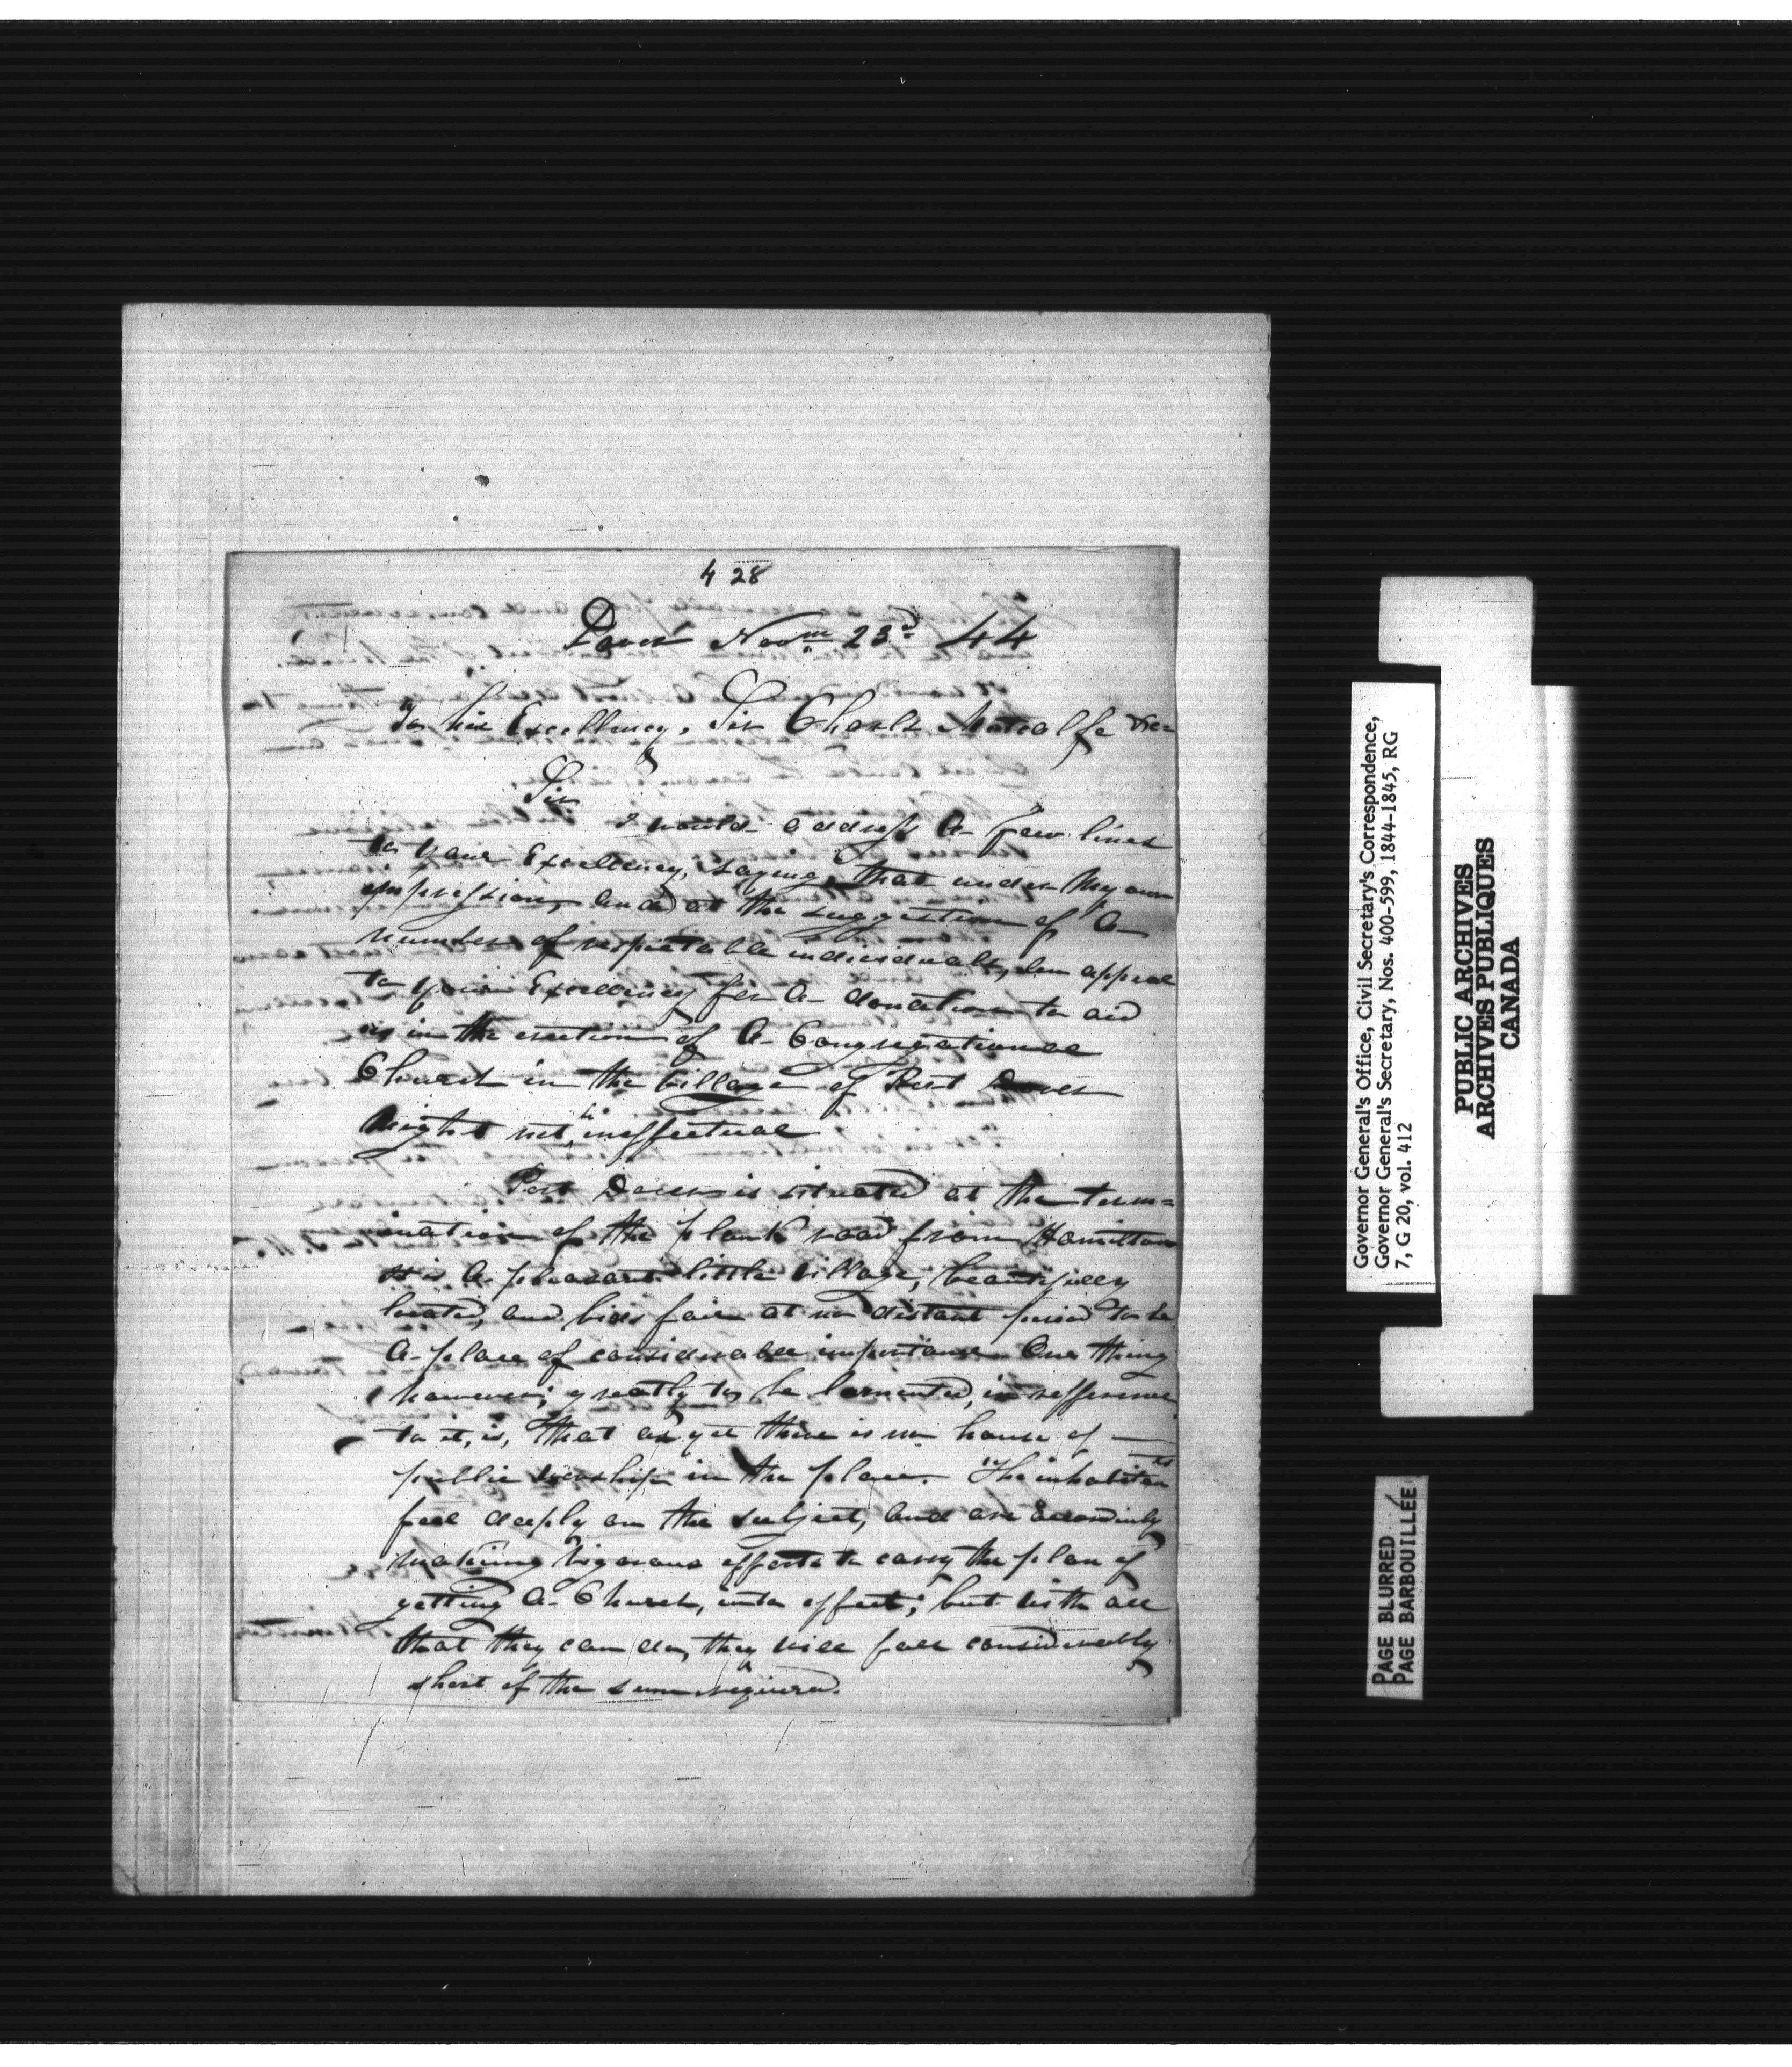 428
Dover Novm 23d 44
To his Excellency, Sir Charls Metcalfe &c
Sir
I would address A few lines
to your Excellency, saying, that under My own
impression, and at the suggestion of A
number of respectable individuals, an appeal
to your Excellency for A donation to aid
us in the erection of A Congregational
Church in the Village of Port Dover
Might not be ineffectual
Port Dover is situated at the term=
ination of the plank road from Hamilton
It is A pleasant little village, beautifully
located, and bids fair at no distant period to be
A place of considerable importance One thing
however, greatly to be lamented, in refference
to it, is, that as yet there is no house of
public worship in the place. The inhabitants
feel deeply on the subject, and are accordinly
making vigorous efforts to carry the plan of
getting A Church, into effect; but with all
that they can do, they will fall considerably
short of the sum required.
Governor General's Office, Civil Secretary's Correspondence,
Governor General's Secretary, Nos. 400-599, 1844-1845, RG
7, G 20, vol. 412
PUBLIC ARCHIVES
ARCHIVES PUBLIQUES
CANADA
PAGE BLURRED
PAGE BARBOUILLÉE